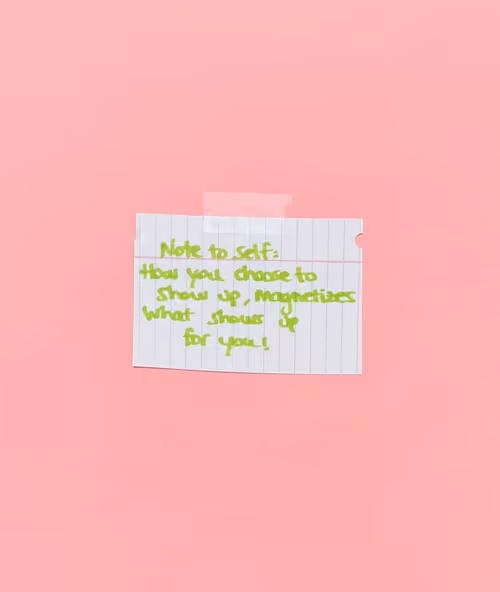 Note to self:
How you choose to
show up, magnetizes
What shows up
for you!